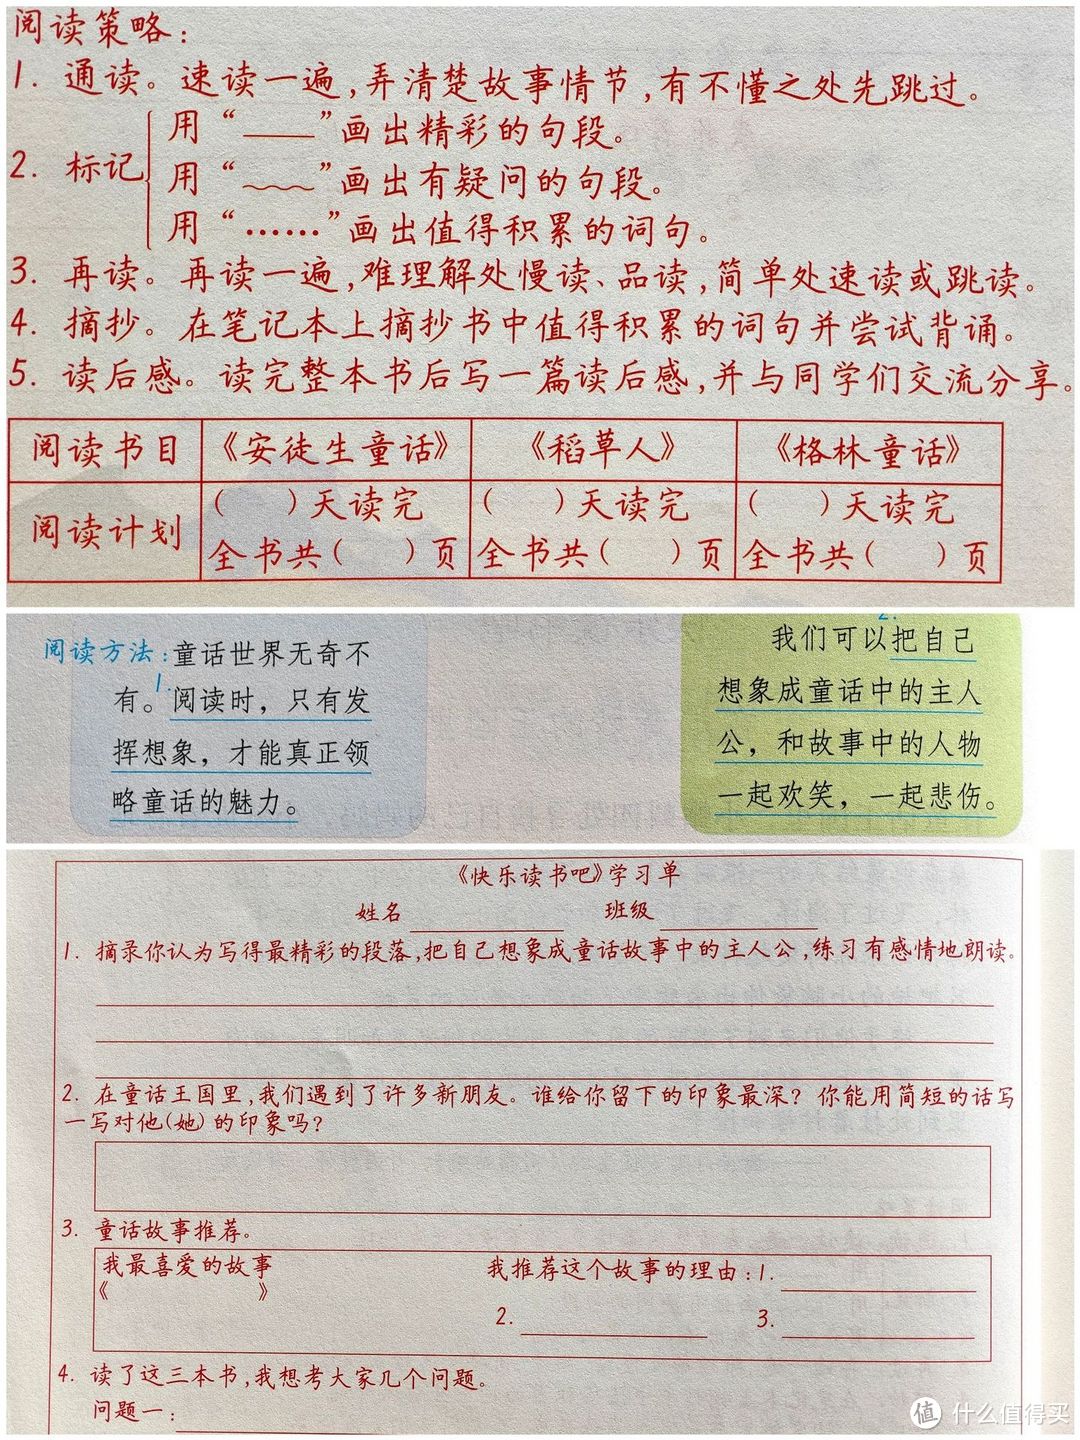 阅读策略：
1. 通读。速读一遍,弄清楚故事情节,有不懂之处先跳过。
2. 标记
用“——”画出精彩的句段。
用“﹏﹏”画出有疑问的句段。
用“……”画出值得积累的词句。
3. 再读。再读一遍,难理解处慢读、品读,简单处速读或跳读。
4. 摘抄。在笔记本上摘抄书中值得积累的词句并尝试背诵。
5. 读后感。读完整本书后写一篇读后感,并与同学们交流分享。
阅读书目 《安徒生童话》 《稻草人》 《格林童话》
阅读计划
( )天读完 ( )天读完 ( )天读完
全书共( )页 全书共( )页 全书共( )页
阅读方法：童话世界无奇不
有。1.阅读时，只有发
挥想象，才能真正领
略童话的魅力。
2.
我们可以把自己
想象成童话中的主人
公，和故事中的人物
一起欢笑，一起悲伤。
《快乐读书吧》学习单
姓名 班级
1. 摘录你认为写得最精彩的段落,把自己想象成童话故事中的主人公,练习有感情地朗读。
2. 在童话王国里,我们遇到了许多新朋友。谁给你留下的印象最深？你能用简短的话写
一写对他(她)的印象吗？
3. 童话故事推荐。
我最喜爱的故事 我推荐这个故事的理由：1.
《 》
2. 3.
4. 读了这三本书,我想考大家几个问题。
问题一：
值 什么值得买